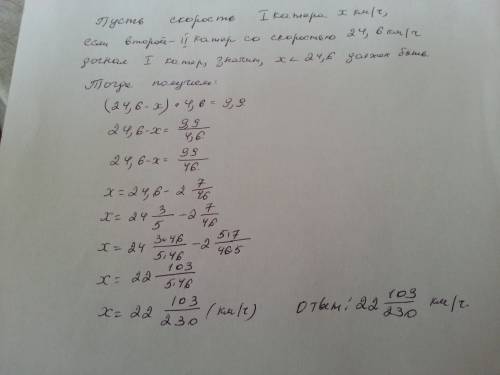 Пусть скорость I катера x км/ч,
если второй - II катер со скоростью 24,6 км/ч
догнал I катер, значит, x < 24,6 должен быть
Тогда получаем:
(24,6-x) • 4,6 = 9,9
24,6-x = 9,9/4,6
24,6-x = 99/46
x = 24,6 - 2 7/46
x = 24 3/5 - 2 7/46
x = 24 3•46/5•46 - 2 5•7/46•5
x = 22 103/5•46
x = 22 103/230 (км/ч) Ответ: 22 103/230 км/ч.